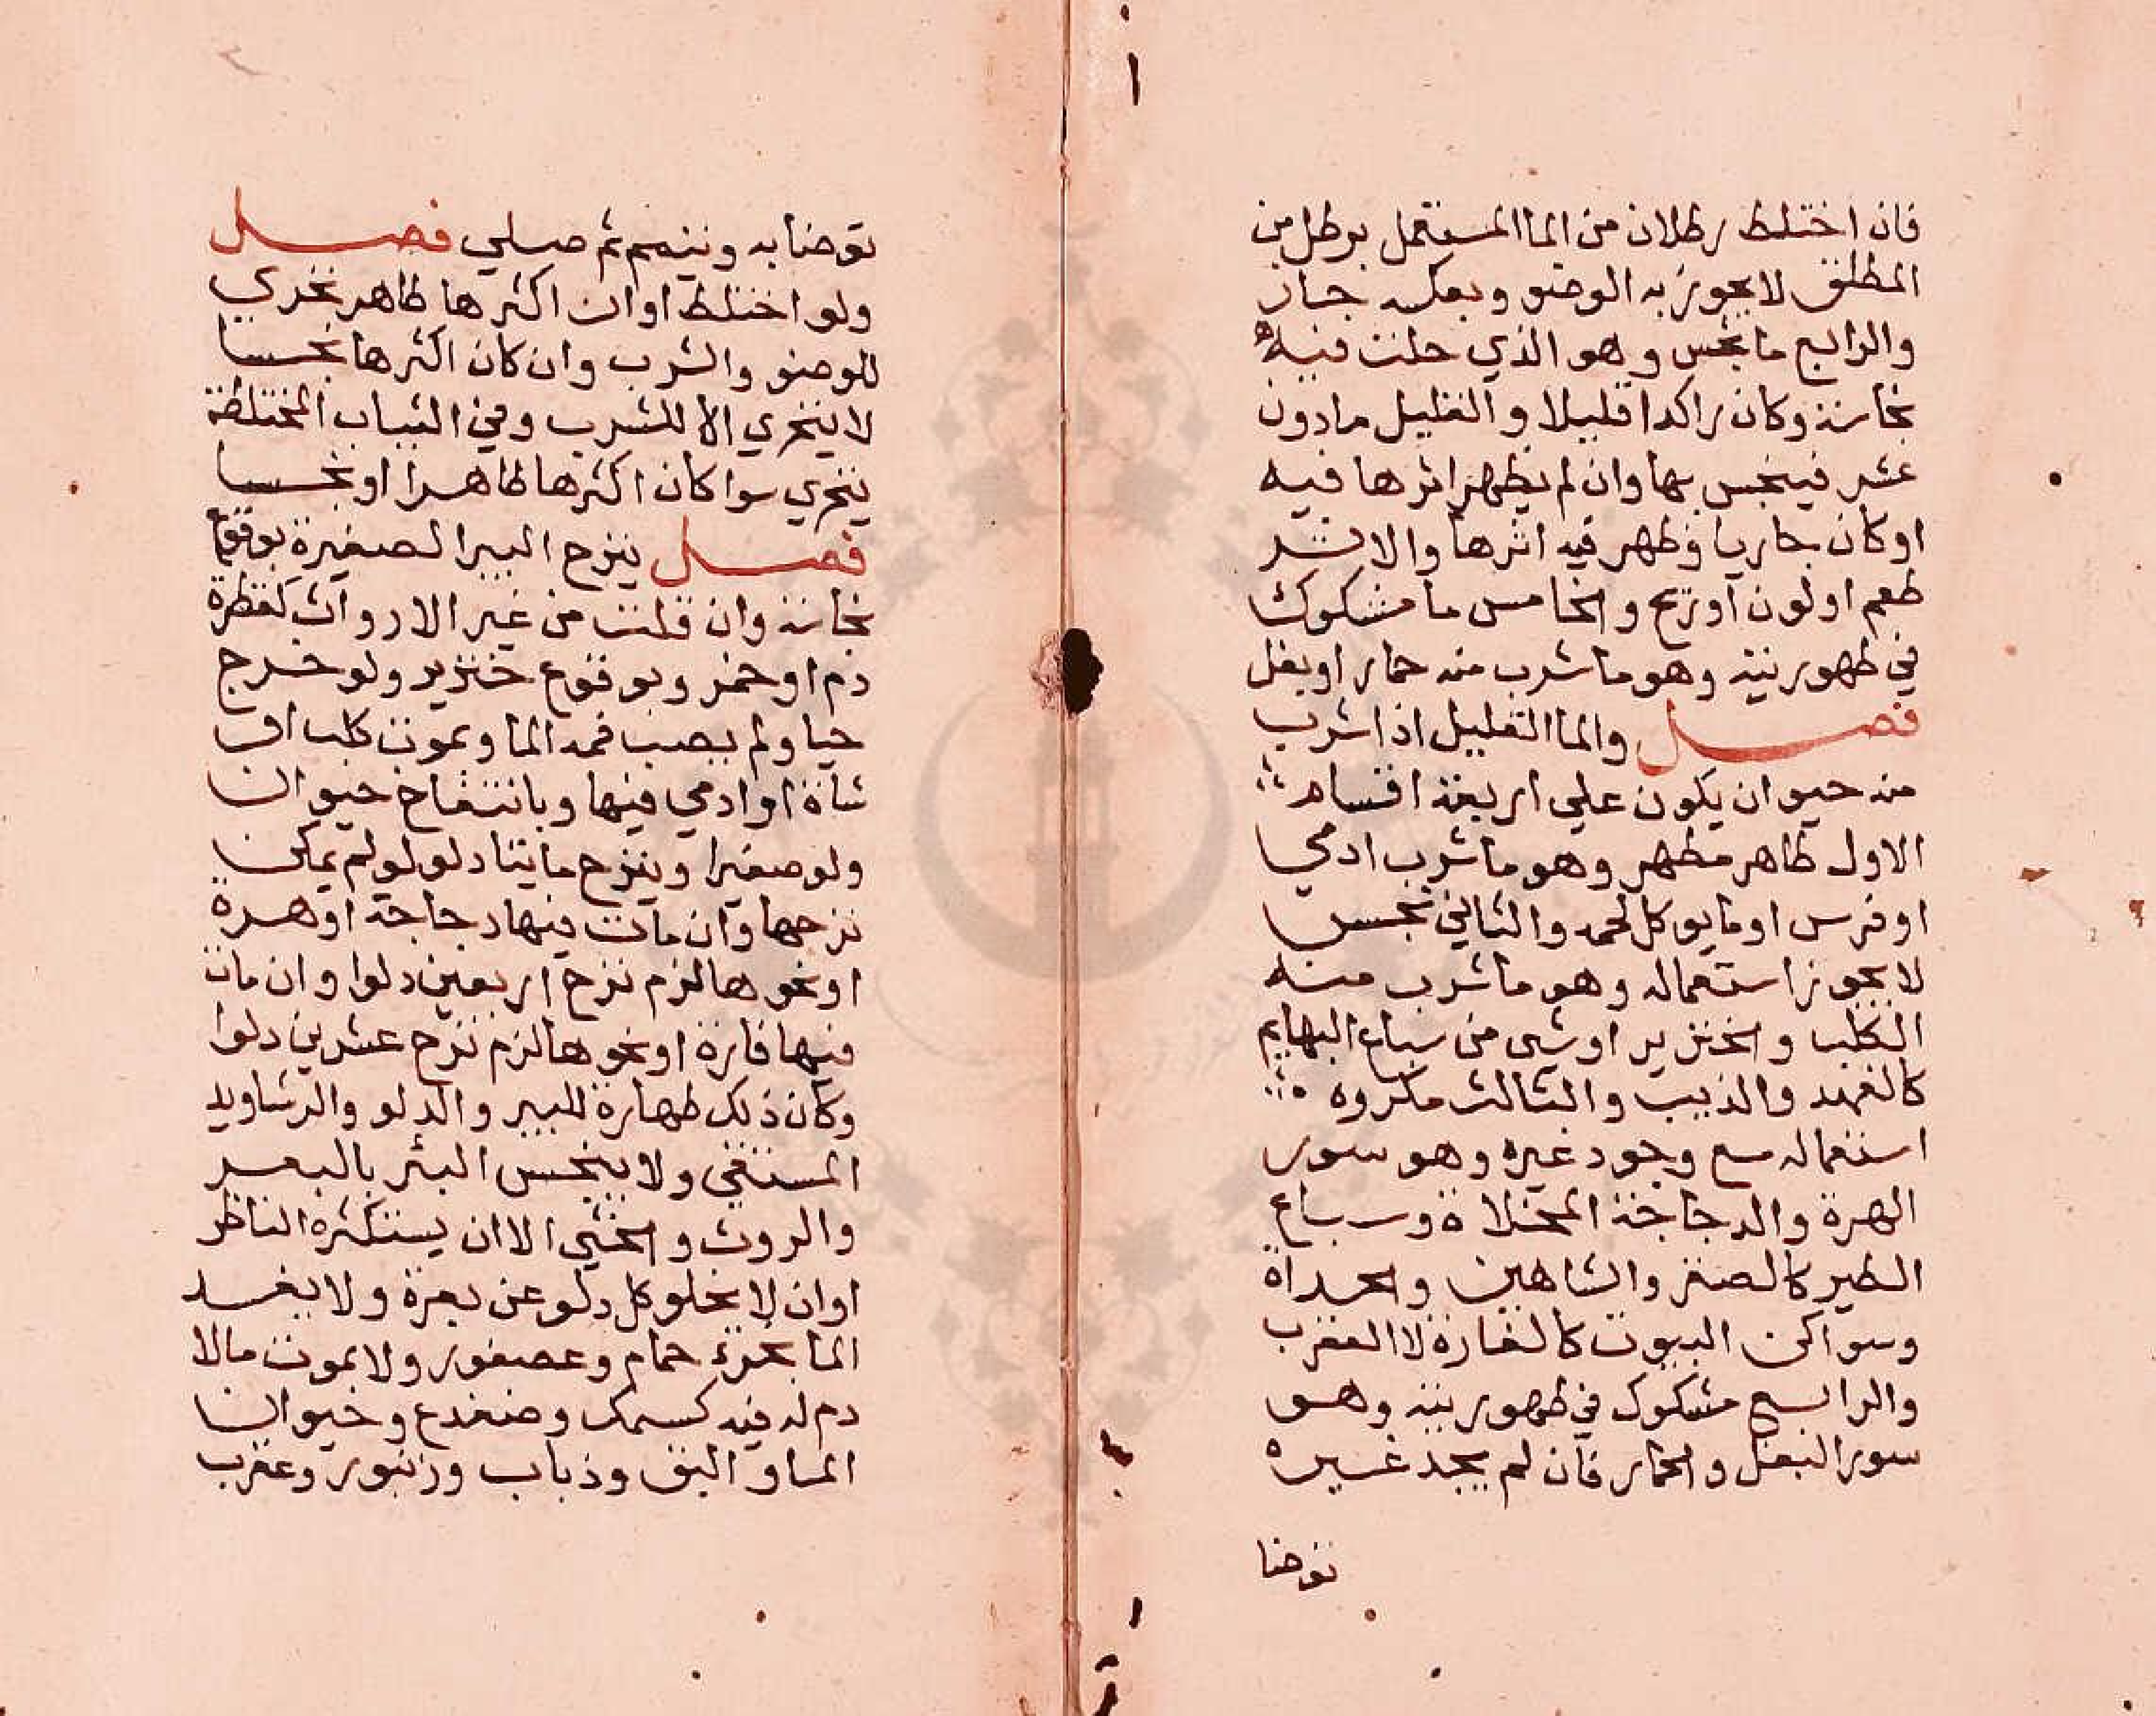 فان اختلط رطلان من الما المستعمل برطل من
المطلق لا يجوز به الوضو وبعكسه جاز
والرابع ما نجس وهو الذي حلت فيه
نجاسة وكان راكدا قليلا والقليل ما دون
عشر فينجس بها وان لم يظهر اثرها فيه
او كان جاريا وظهر فيه اثرها والاثر
طعم او لون او ريح والخامس ما مشكوك
في طهوريته وهو ما شرب منه حمار او بغل
فصل والما القليل اذا شرب
منه حيوان يكون علي اربعة اقسام
الاول طاهر مطهر وهو ما شرب ادمي
او فرس او ما يوكل لحمه والثاني نجس
لا يجوز استعماله وهو ما شرب منه
الكلب والخنزير او شي من سباع البهايم
كالفهد والذيب والثالث مكروه
استعماله مع وجود غيره وهو سور
الهرة والدجاجة المخلاة وسباع
الطير كالصقر والشاهين والحداة
وسواكن البيوت كالفارة لا العقرب
والرابع مشكوك في طهوريته وهو
سور البغل والحمار فان لم يجد غيره
توضا
توضا به وتيمم ثم صلي فصل
ولو اختلط اوان اكثرها طاهر تحري
للوضو والشرب وان كان اكثرها نجسا
لا يتحري الا للشرب وفي الثياب المختلطة
يتحري سوا كان اكثرها طاهرا او نجسا
فصل ينزح البير الصغيرة بوقوع
نجاسة وان قلت من غير الارواث كقطرة
دم او خمر وبوقوع خنزير ولو خرج
حيا ولم يصب فمه الما وبموت كلب او
شاة او ادمي فيها وبانتفاخ حيوان
ولو صغيرا وينزح مايتا دلو لو لم يمكن
نزحها وان مات فيها دجاجة او هرة
او نحوها لزم نزح اربعين دلوا وان مات
فيها فارة او نحوها لزم نزح عشرين دلوا
وكان ذلك طهارة للبير والدلو والرشا ويد
المستقي ولا ينجس البئر بالبعر
والروث والخثي الا ان يستكثره الناظر
او ان لا يخلو كل دلو عن بعرة ولا يفسد
الما بخرء حمام وعصفور ولا بموت ما لا
دم له فيه كسمك وضفدع وحيوان
الما وبق وذباب وزنبور وعقرب